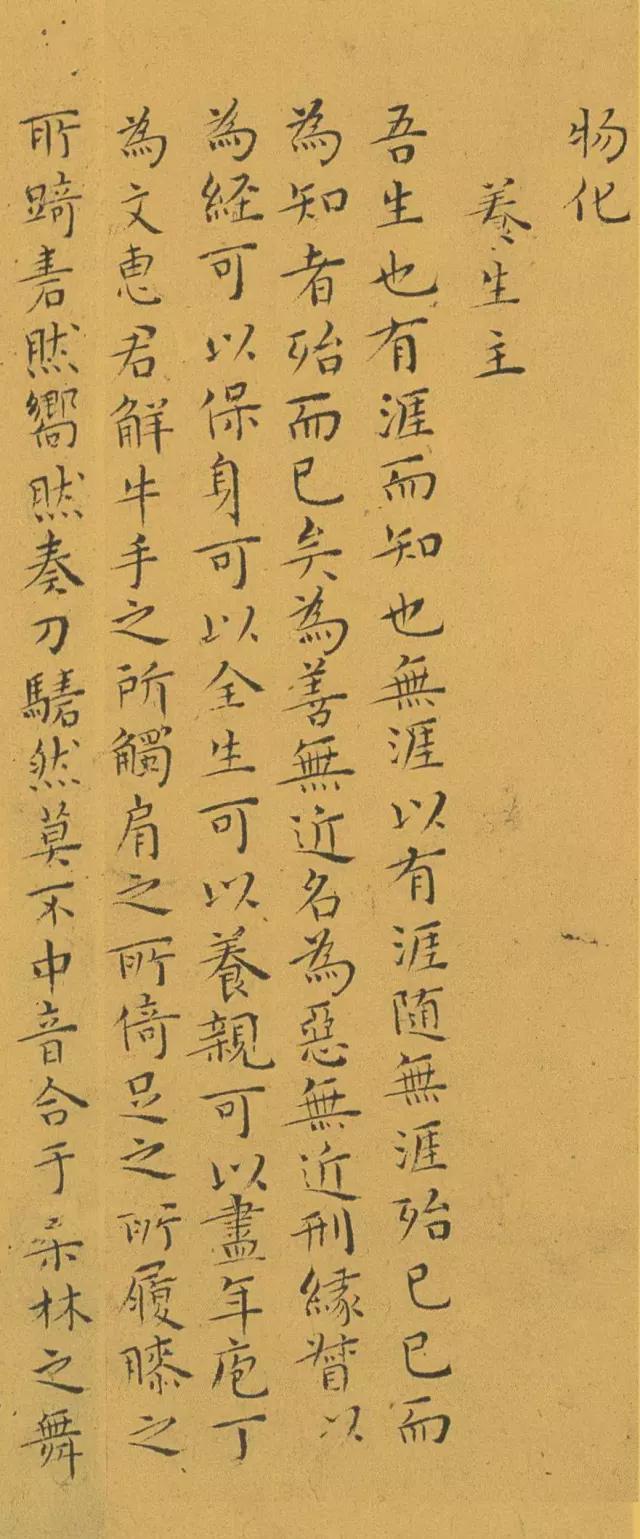 物化
養生主
吾生也有涯而知也無涯以有涯随無涯殆已已而
為知者殆而已矣為善無近名為惡無近刑緣督以
為経可以保身可以全生可以養親可以盡年庖丁
為文恵君解牛手之所觸肩之所倚足之所履膝之
所踦砉然嚮然奏刀騞然莫不中音合于桒林之舞